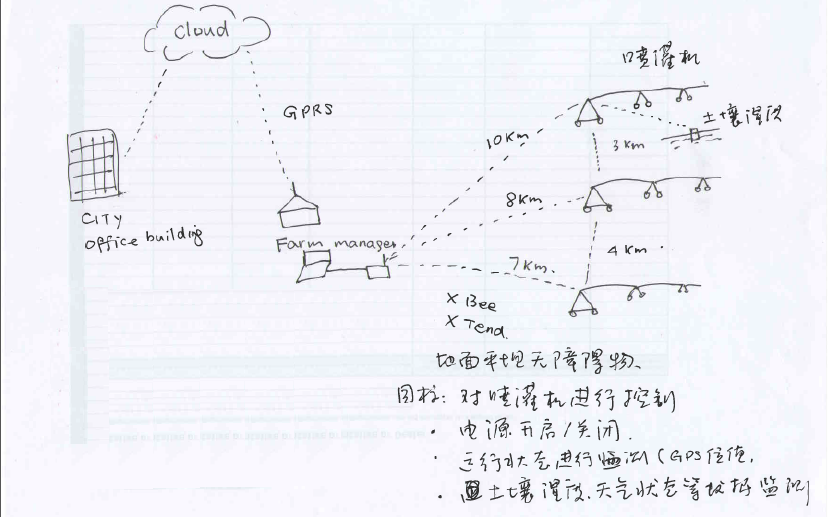 Cloud
喷灌机
GPRS
土壤湿度
10Km
3 Km
8Km
CITY
office building
Farm manager
4 Km
7 Km.
X Bee
X Tend.
地面平坦无障碍物、
目标: 对喷灌机进行控制
· 电源开启/关闭.
· 运行状态进行监测(GPS位值,
· 土壤湿度、天气状态等数据监测